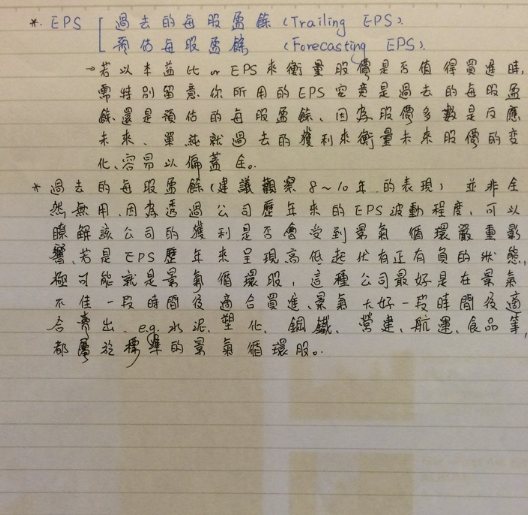 *. EPS [ 過去的每股盈餘 (Trailing EPS)
預估每股盈餘 (Forecasting EPS)
→若以本益比 or EPS 來衡量股價是否值得買進時,
需特別留意你所用的EPS究竟是過去的每股盈
餘還是預估的每股盈餘、因為股價多數是反應
未來、單純就過去的獲利來衡量未來股價的變
化、容易以偏蓋全。
* 過去的每股盈餘(建議觀察 8~10年的表現) 並非全
然無用、因為透過公司歷年來的EPS波動程度,可以
瞭解該公司的獲利是否會受到景氣循環嚴重影
響、若是EPS歷年來呈現高低起伏有正有負的狀態,
極可能就是景氣循環股,這種公司最好是在景氣
不佳一段時間後適合買進、景氣大好一段時間後適
合賣出、e.g.水泥、塑化、鋼鐵、營建、航運、食品等,
都屬於標準的景氣循環股。